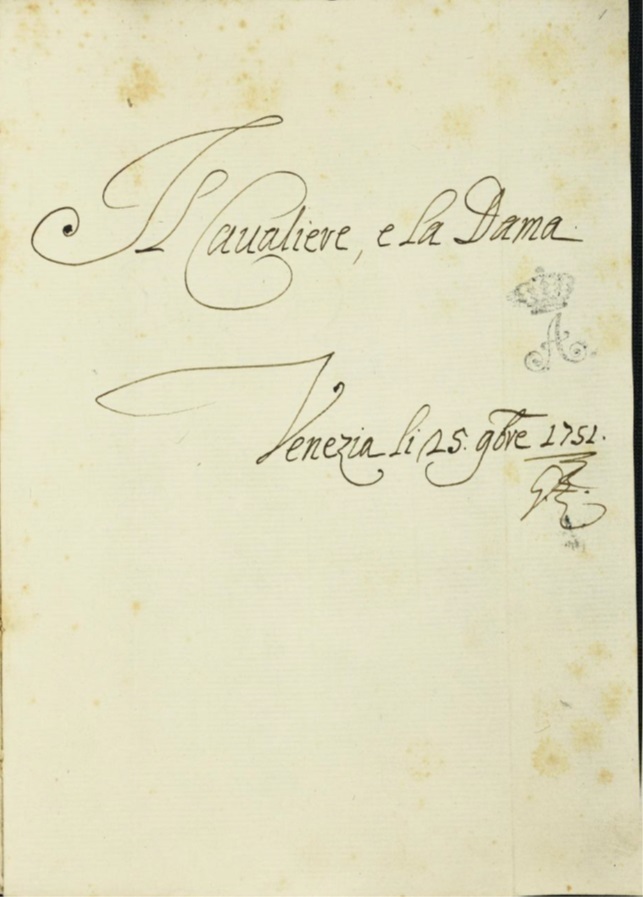 1
Il Caualiere, e la Dama.
A
Venezia li 25. 9bre 1751.